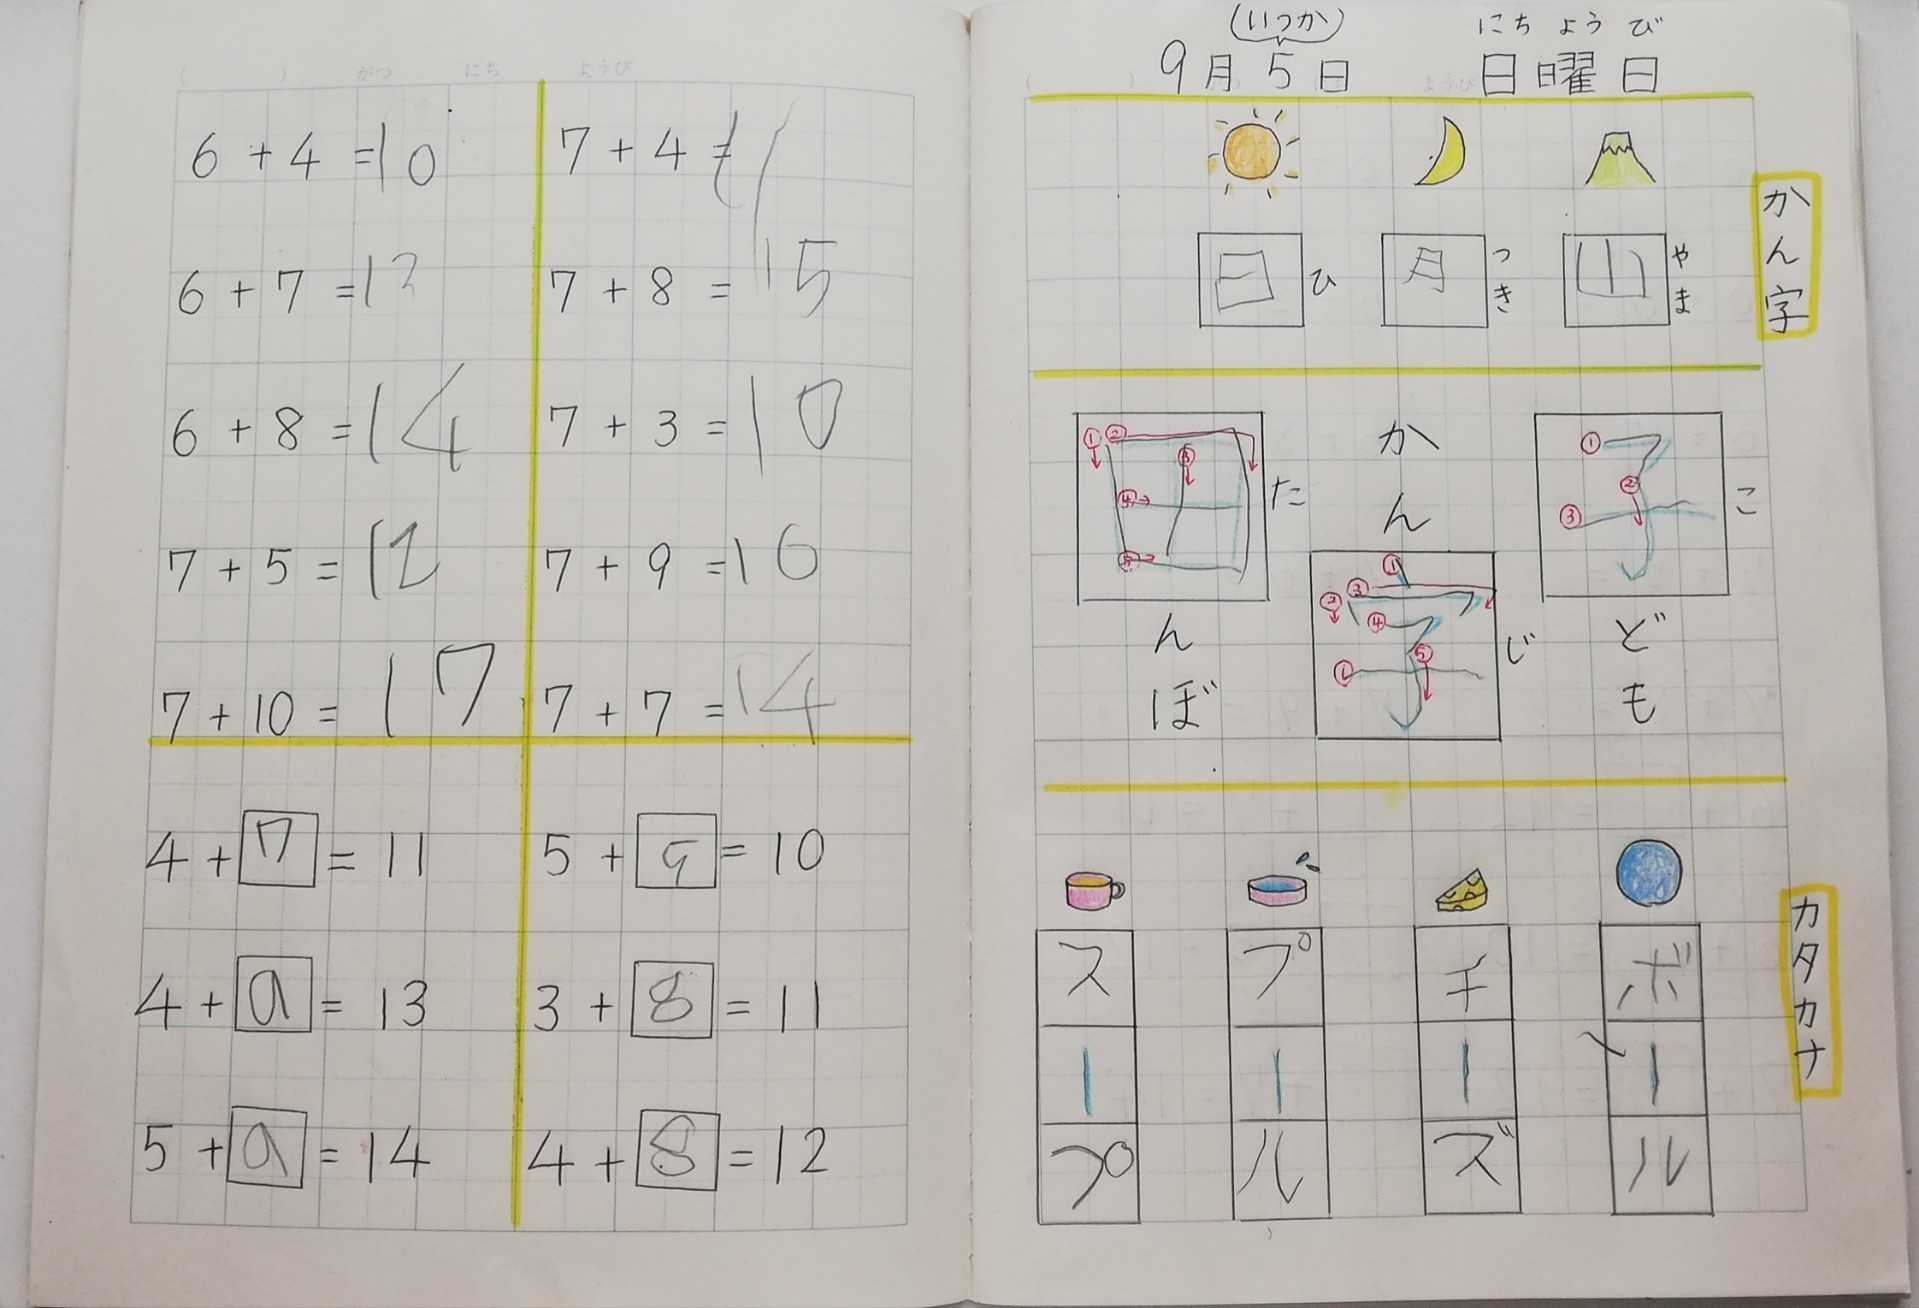 ( ) がつ にち ようび
6 + 4 = 10
6 + 7 = 13
6 + 8 = 14
7 + 5 = 12
7 + 10 = 17
7 + 4 = 11
7 + 8 = 15
7 + 3 = 10
7 + 9 = 16
7 + 7 = 14
4 + 7 = 11
4 + 9 = 13
5 + 9 = 14
5 + 5 = 10
3 + 8 = 11
4 + 8 = 12
(いつか) にちようび
9月5日 日曜日
かん字
山 やま
月 つき
日 ひ
① ② ③
子ども
こ
① ② ③ ④ ⑤ ①
かん字
じ
① ② ③ ④ ⑤
田んぼ
た
カタカナ
ボール
チーズ
プール
スープ